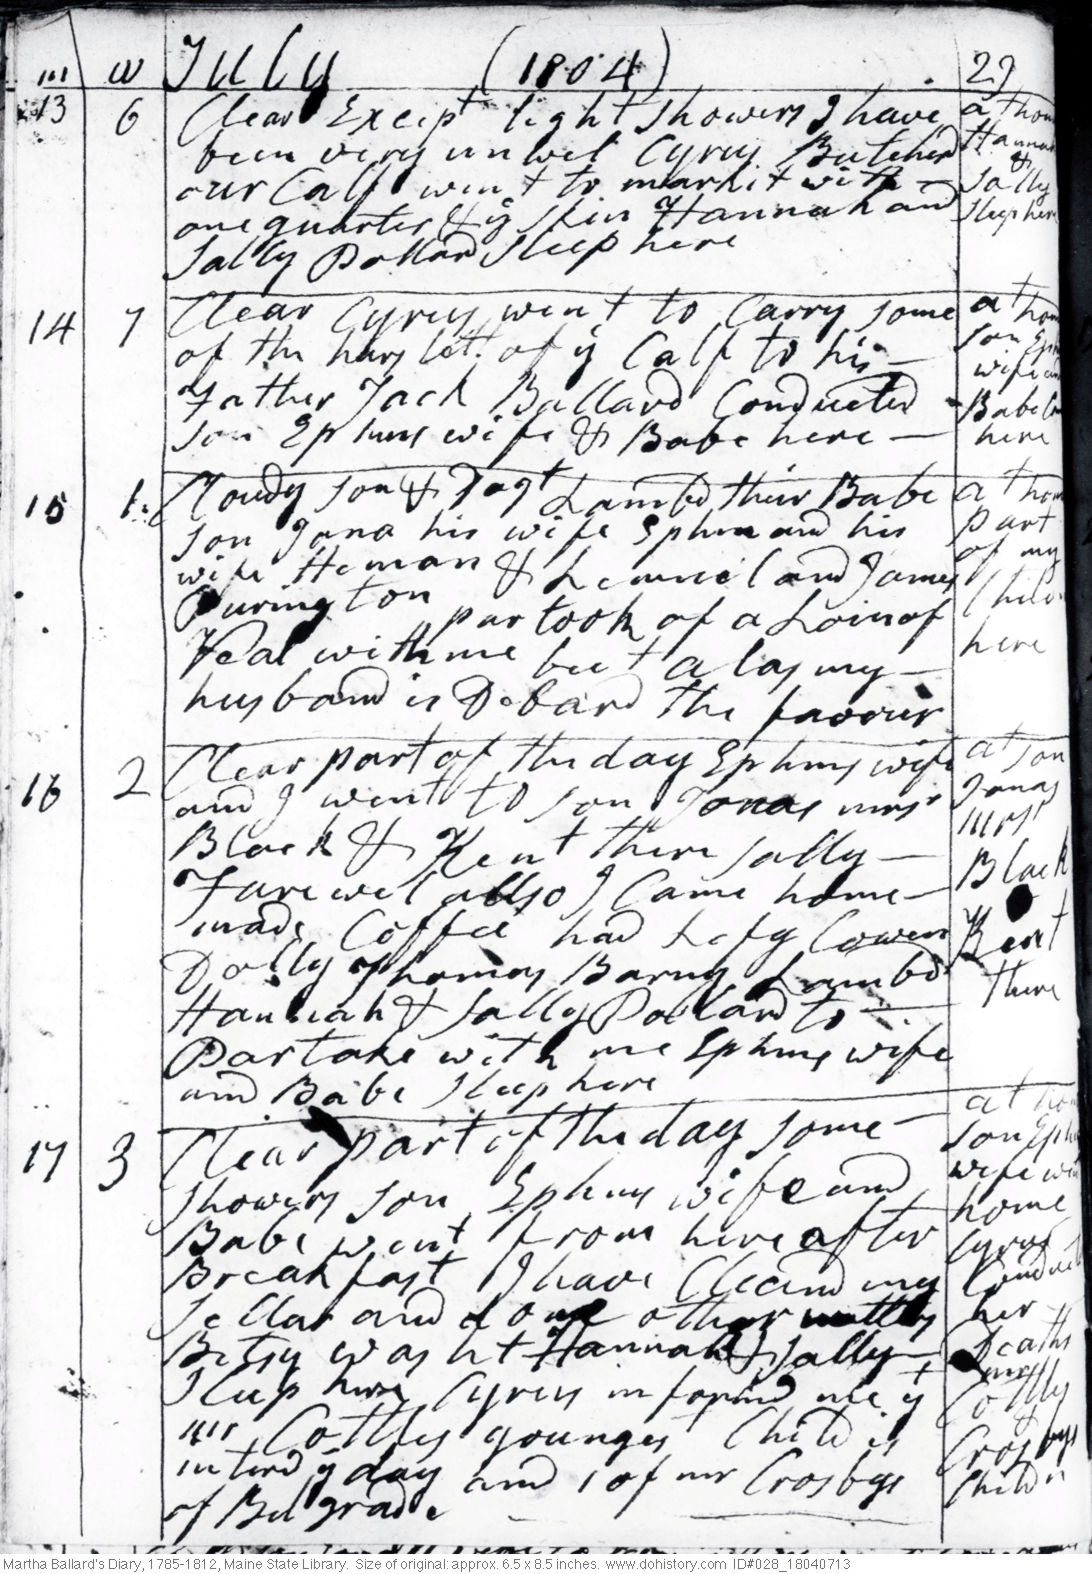 m w July (1804) . 29
13 6 Clear Except light Showers I have
been very unwel Cyrus Butcherd
our Calf went to markit with
one quarter & ÿ skin Hannah and
Sally Pollard Sleep here
at home
Hannah
&
Sally
sleep here
14 7 Clear Cyrus went to Carry some
of the harslett of ÿ Calf to his
Father Jack Ballard Conducted
son Ephms wife & Babe here
at home
son Ephm
wife and
Babe
here
15 1 Cloudy son & Dagt Lambd their Babe
son Jona his wife Ephm and his
wife Heman & Lemuel and James
Purington partook of a Loin of
Veal with me but alas my
husband is Debard the favour
at home
part
of my
Child
here
16 2 Clear part of the day Ephms wife
and I went to son Jonas mrss
Black & Kent there Sally
Farewel allso I Came home
made Coffee had Cowen
Dolly Thomas Barny Lambd
Hannah & Sally Pollard to
Partake with me Ephms wife
and Babe sleep here
at son
Jonas
mrss
Black
Kent
there
17 3 Clear part of the day some
showers son Ephms wife and
Babe went from here after
Breakfast I have Cleand my
sellar and done other matters
Betsy washt Hannah & Sally
sleep here Cyrus informd me ÿ
mr Cottles younges Child is
interd ÿ day and 1 of mr Crosbys
of Belgrade
at home
son Ephm
wife went
home
Cyrus
Conduct
her
Deaths
Cottles
&
Crosbys
Childn
Martha Ballard's Diary, 1785-1812, Maine State Library. Size of original: approx. 6.5 x 8.5 inches. www.dohistory.com ID#028_18040713